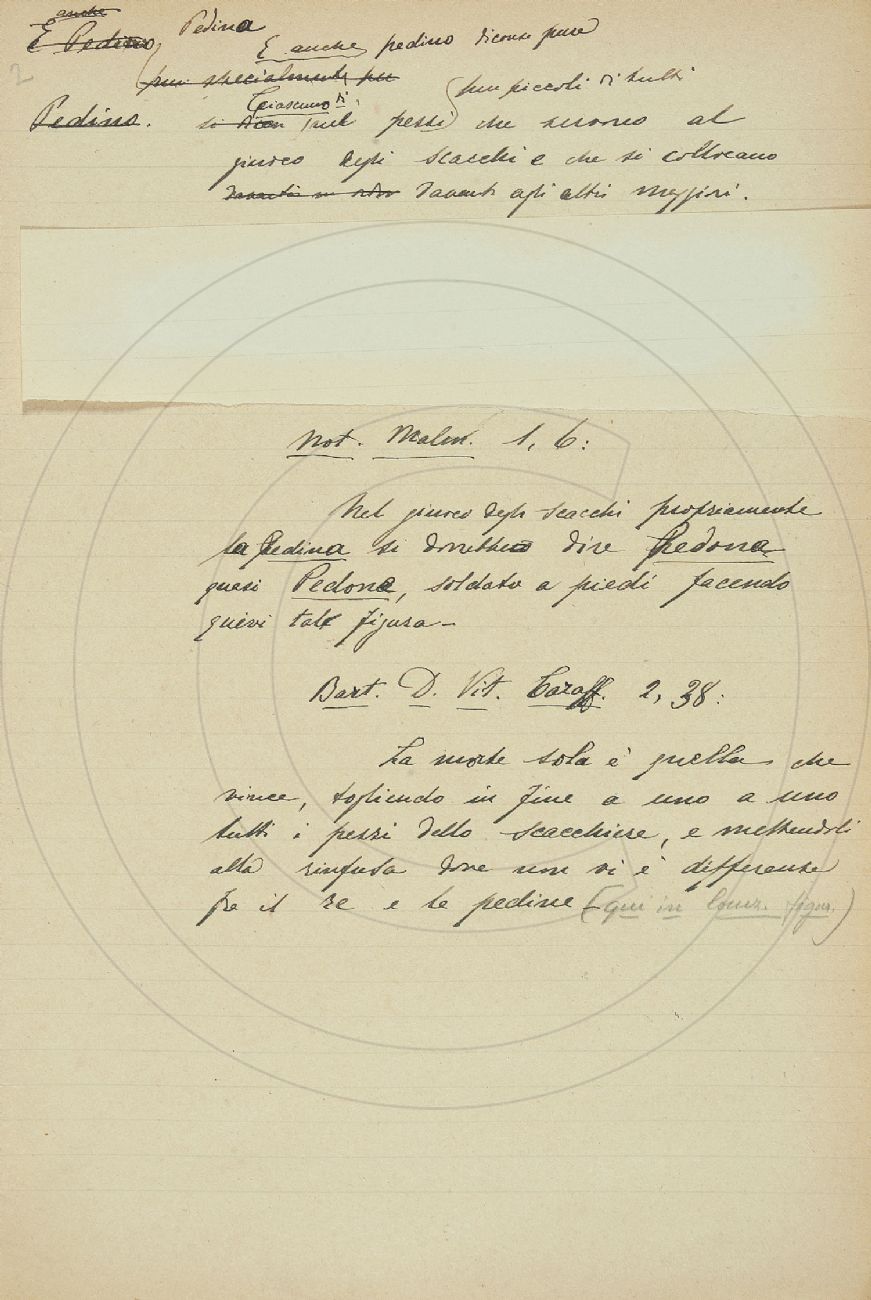 anche
E Pedino Pedina
E anche pedino dicousi pure
più specialmente per
più piccoli di tutti
Ciascuno di
Pedino. si dicon quei pezzi che servono al
giuoco degli scacchi e che si collocano
davanti in ordine davanti agli altri maggiori.
Not. Malm. 1, 6:
Nel giuoco degli scacchi propriamente
la Pedina si dovrebbe dire Pedona
quasi Pedona, soldato a piedi facendo
quivi tale figura –
Bart. D. Vit. Caraff. 2, 38:
La morte sola è quella che
vince, togliendo in fine a uno a uno
tutti i pezzi dello scacchiere, e mettendoli
alla rinfusa dove non vi è differenza
fra il re e le pedine – (qui in locuz. figur.)
2